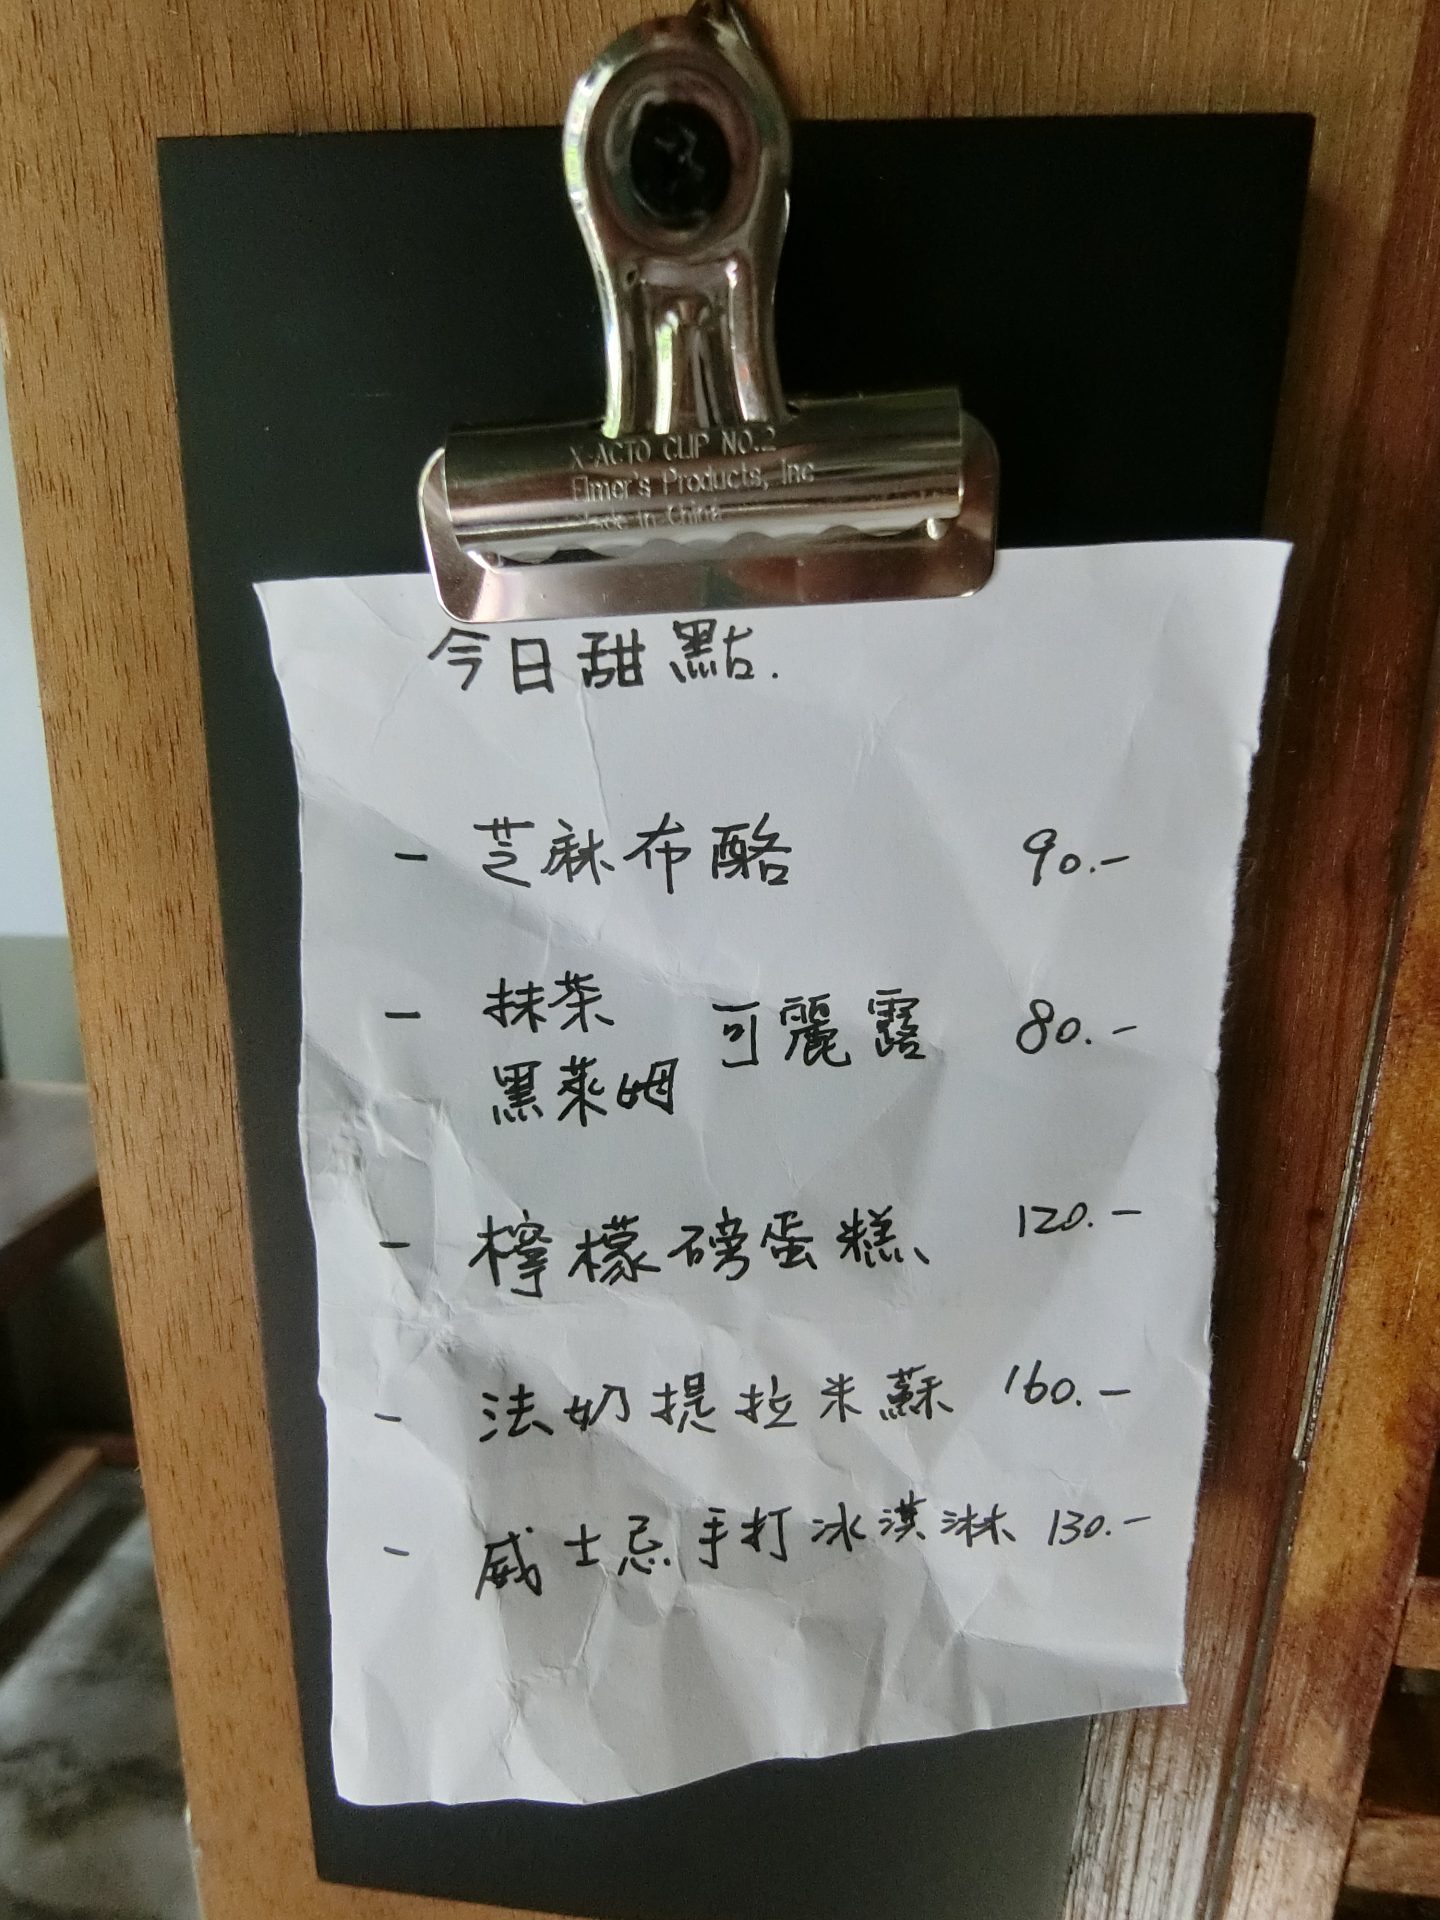 X-ACTO CLIP NO.2
Elmer's Products, Inc
Made in China
今日甜點.
- 芝麻布酪 90.-
- 抹茶 可麗露 80.-
黑萊姆
- 檸檬磅蛋糕 120.-
- 法奶提拉米蘇 160.-
- 威士忌手打冰淇淋 130.-